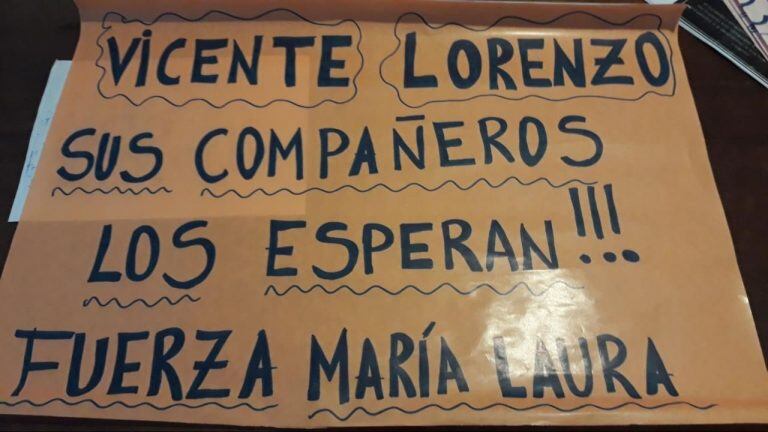 VICENTE LORENZO
SUS COMPAÑEROS
LOS ESPERAN!!!
FUERZA MARÍA LAURA